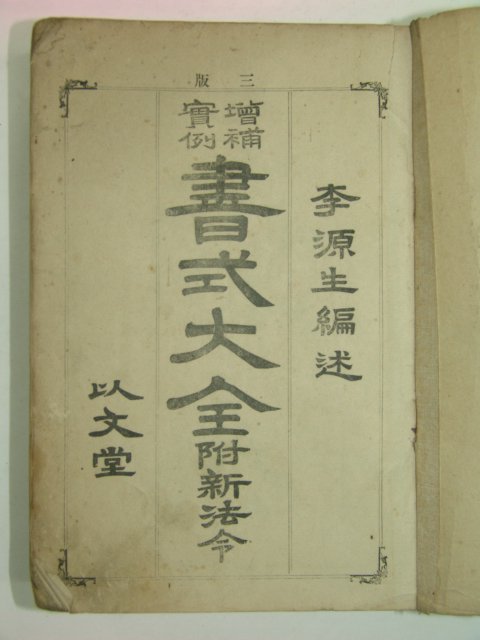 三版
李源生編述
增補
實例
書式大全附新法令
以文堂